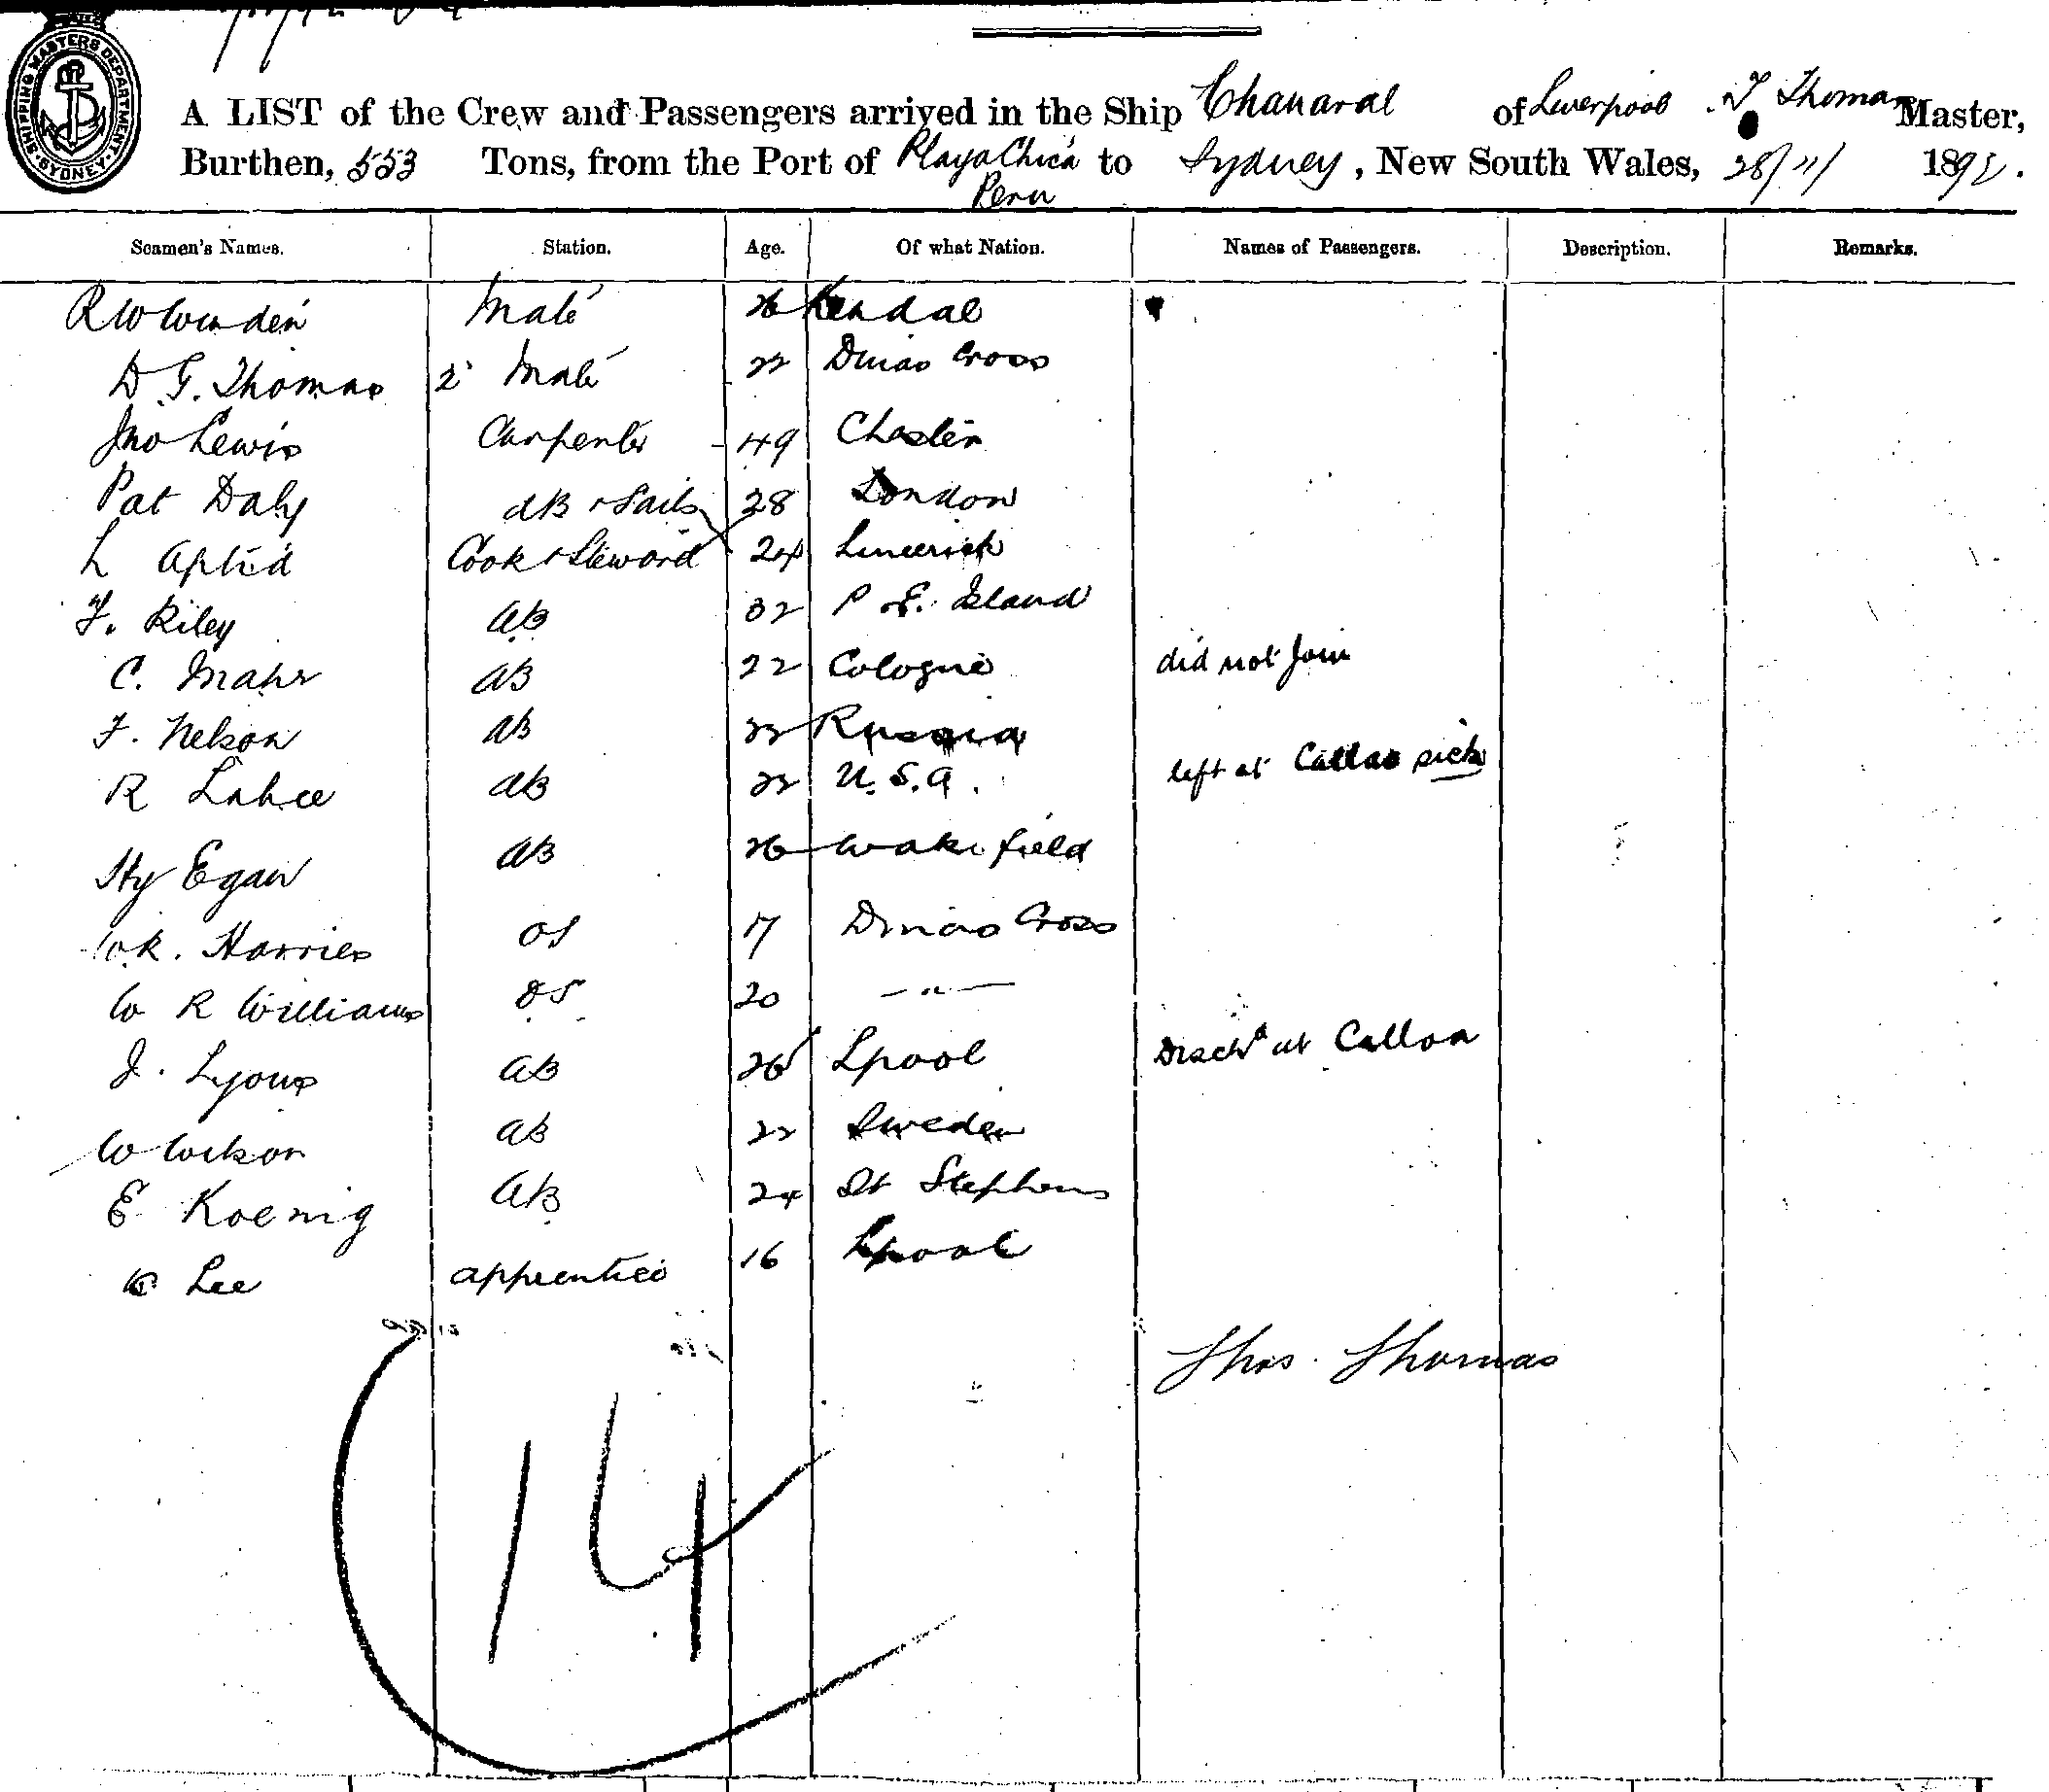 SHIPPING MASTERS DEPARTMENT. SYDNEY.
A LIST of the Crew and Passengers arrived in the Ship Chanaral of Liverpool T Thomas Master,
Burthen, 553 Tons, from the Port of Playa Chica Peru to Sydney, New South Wales, 28/11/ 1892.
Seamen's Names. Station. Age. Of what Nation. Names of Passengers. Description. Remarks.
R W Mate 26 Kendal
D. G. Thomas 2 Mate 22 Dinas Cross
Jno Lewis Carpenter 49 Chester
Pat Daly AB & Sails 28 London
L Cook & Steward 24 Limerick
F. Riley AB 32 P. E. Island
C. Mahr AB 22 Cologne did not Join
F. Nelson AB 22 Russia
R AB 22 U.S.A. left at Callao sick
Hy Egan AB 26 Wakefield
Harries OS 17 Dinas Cross
W R Williams OS 20 — " —
J. Lyons AB 26 Lpool Dischd at Callao
W AB 22 Sweden
E Koenig AB 24 St Stephens
Lee apprentice 16 Lpool
Thos. Thomas
14